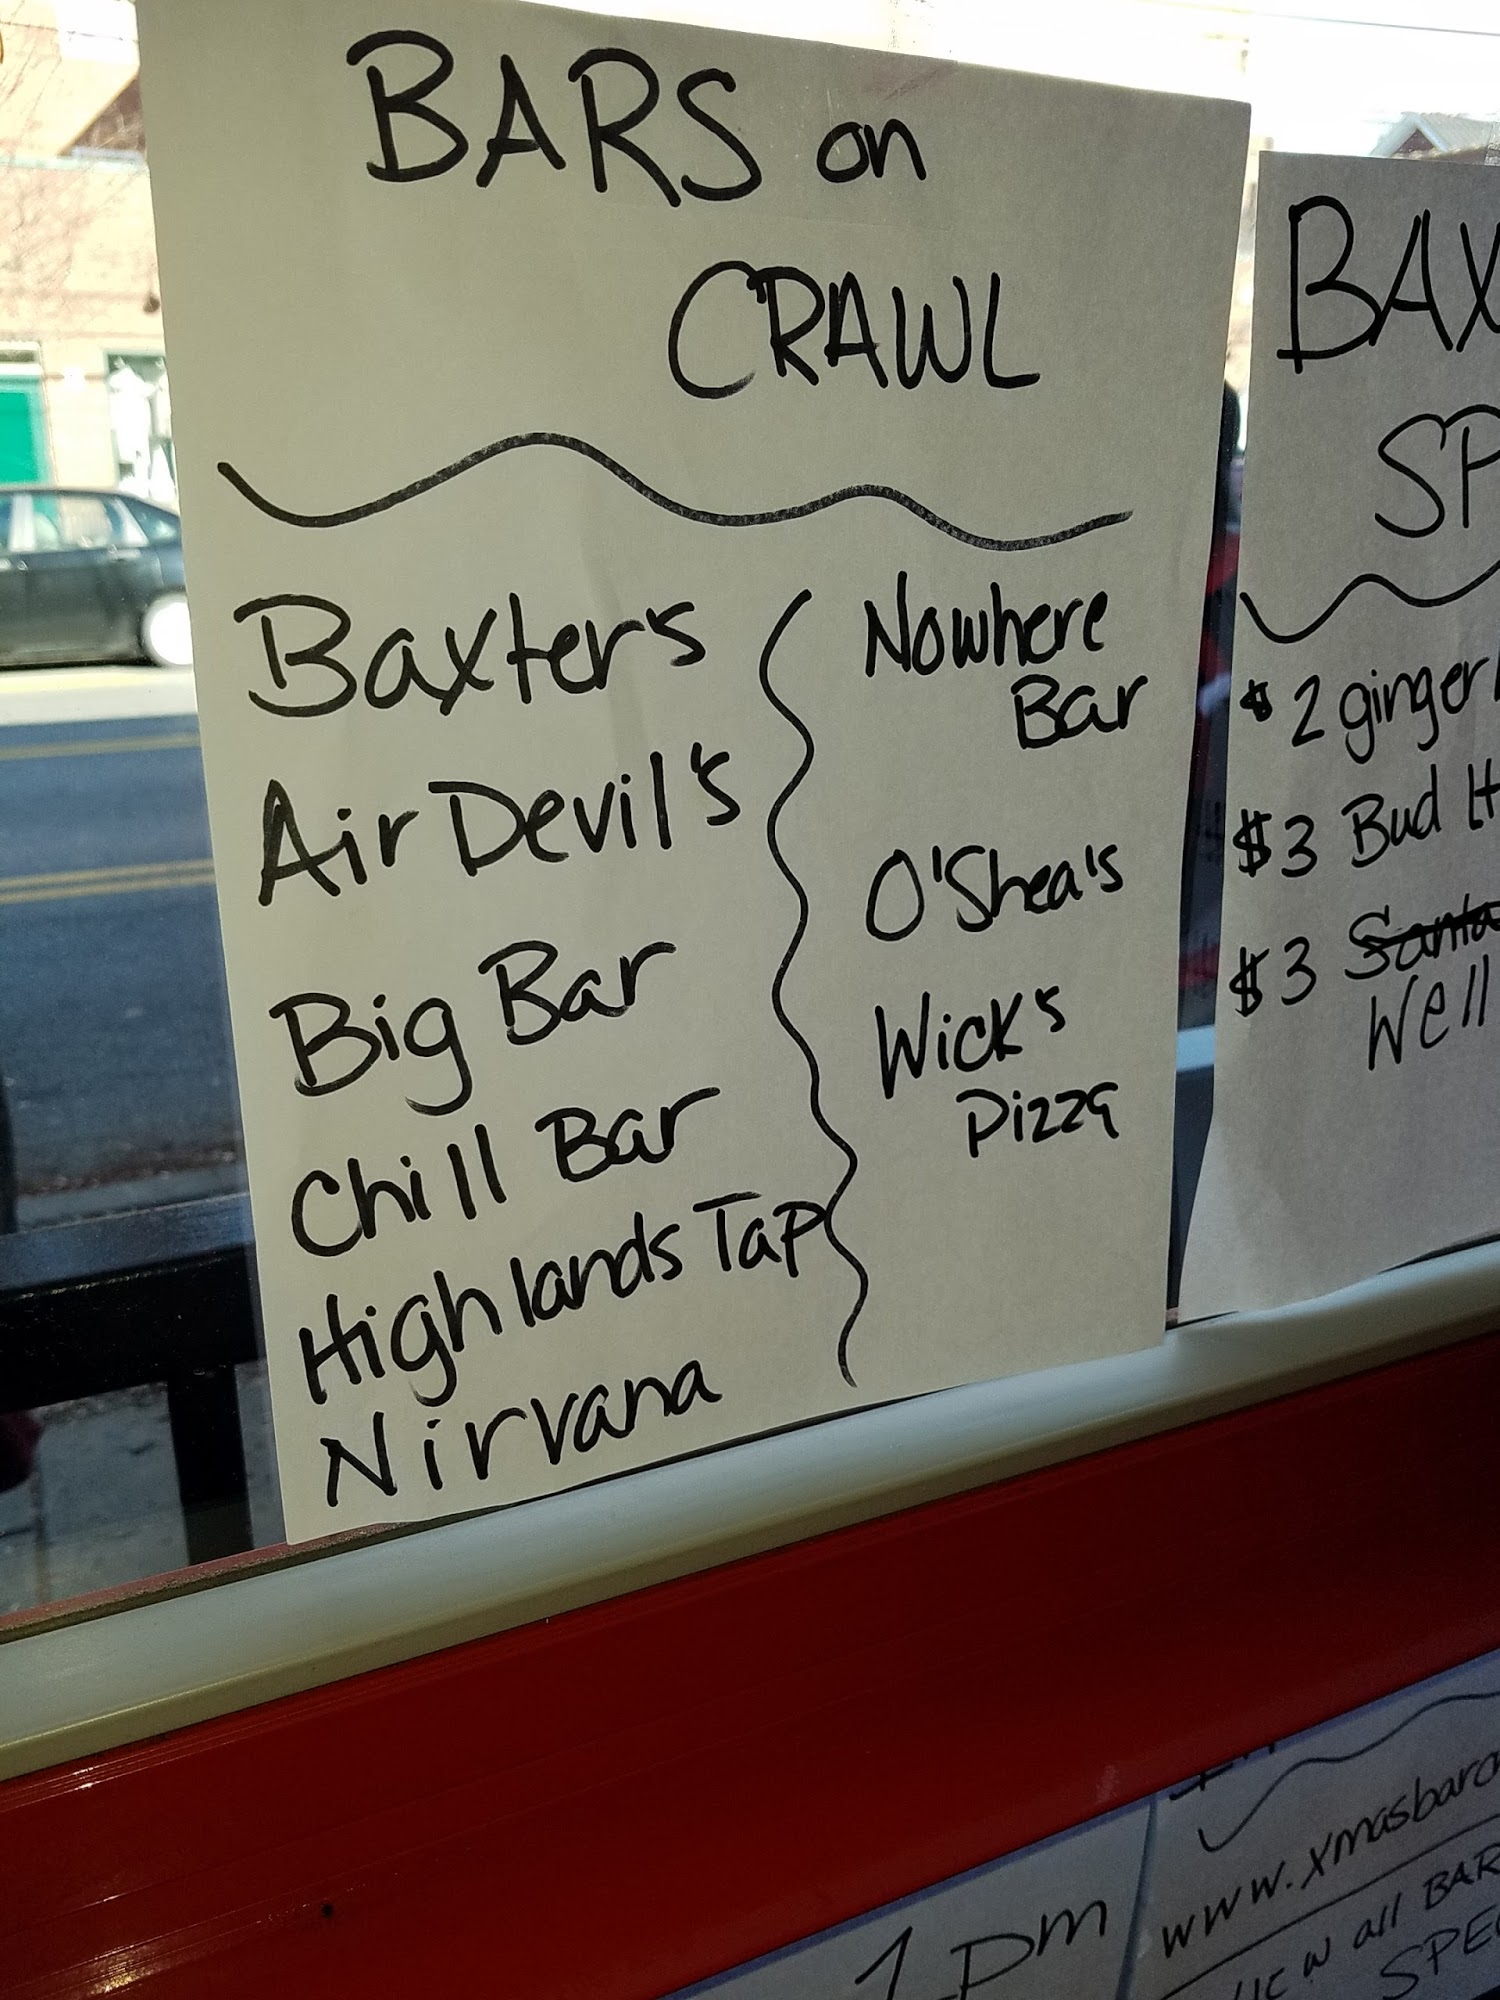 BARS on
CRAWL
Baxter's
Air Devil's
Big Bar
Chill Bar
Highlands Tap
Nirvana
Nowhere
Bar
O'Shea's
Wick's
Pizza
BAX
SP
$2 ginger
$3 Bud lt
$3 Santa
Well
1 pm
www.xmasbarc
all BAR
SPEC